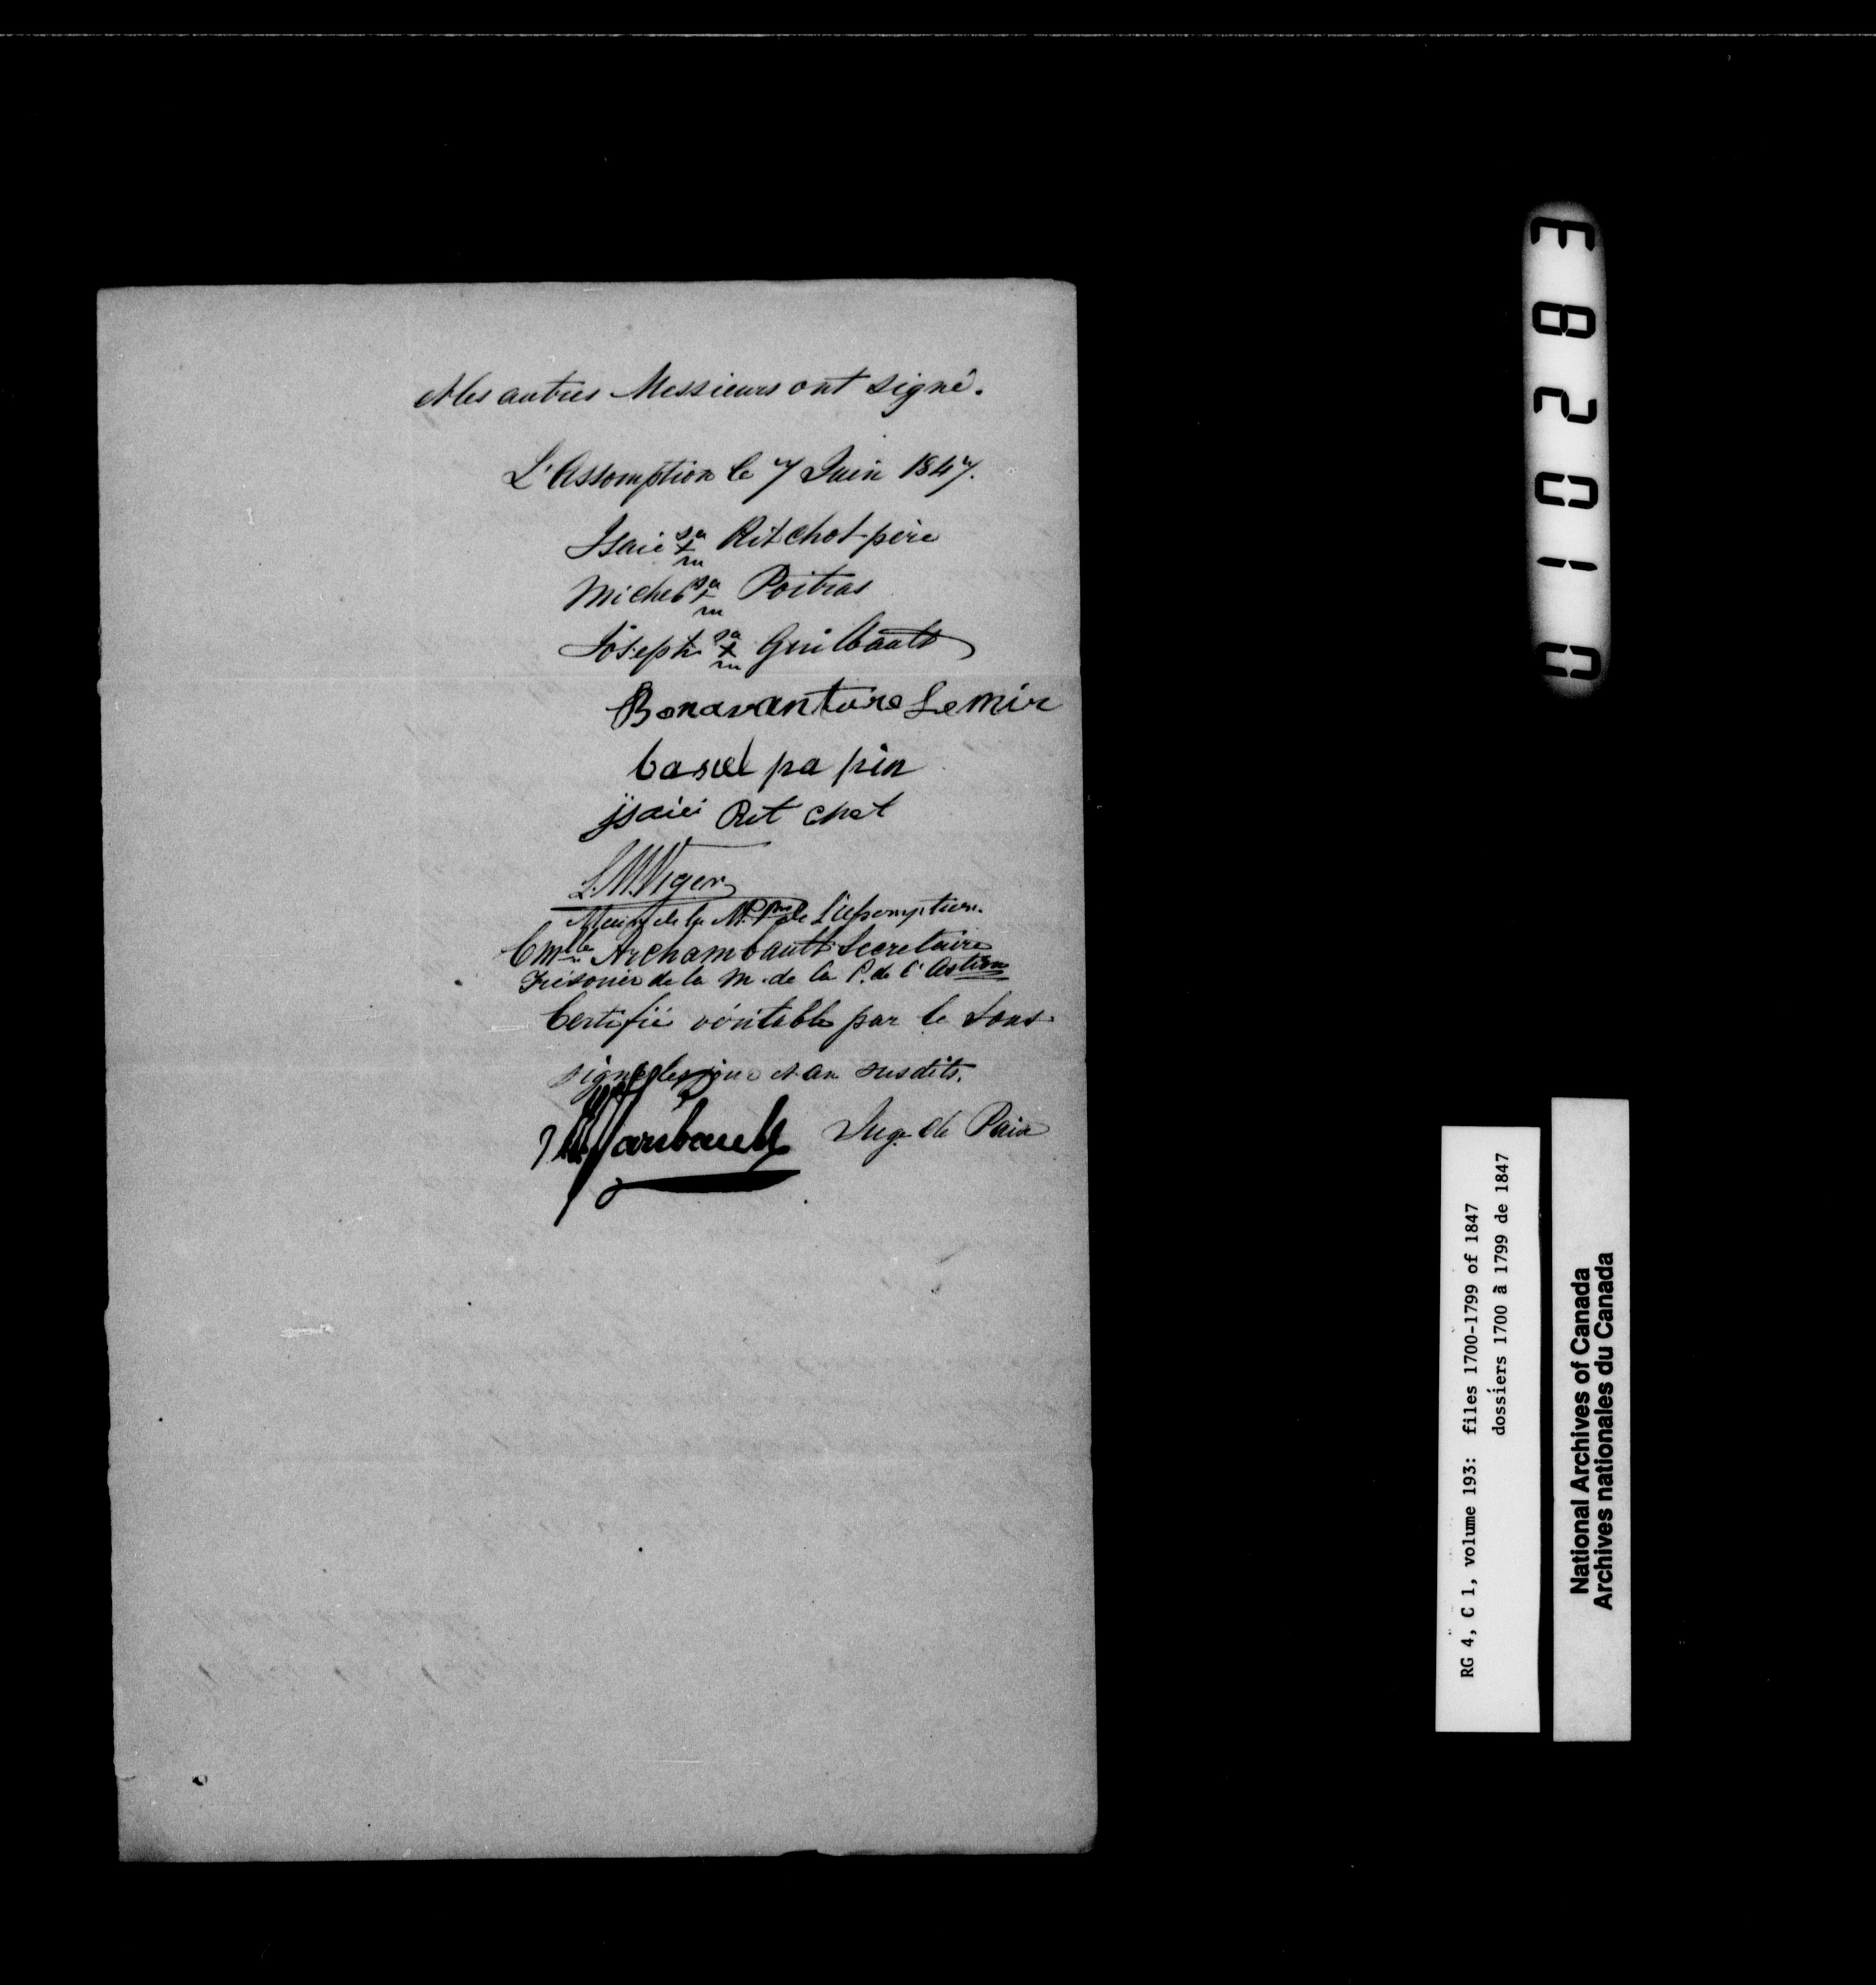 & les autres Messieurs ont signé.
L'Assomption le 7 Juin 1847.
Isaie sa + m Ritchot père
Michel sa + m Poitras
Joseph sa + m Guilbault
Bonavanture Lemir
basil pa pin
jsaie Rit chot
L. M. Viger
Maire de la M. Pse de L'assomption.
Cmlle Archambault Secretaire
Trésorier de la M. de la P. de l'Astion
Certifié véritable par le Sous
signé les jour et an susdits.
Juge de Paix
010283
RG 4, C 1, volume 193: files 1700-1799 of 1847
dossiers 1700 à 1799 de 1847
National Archives of Canada
Archives nationales du Canada